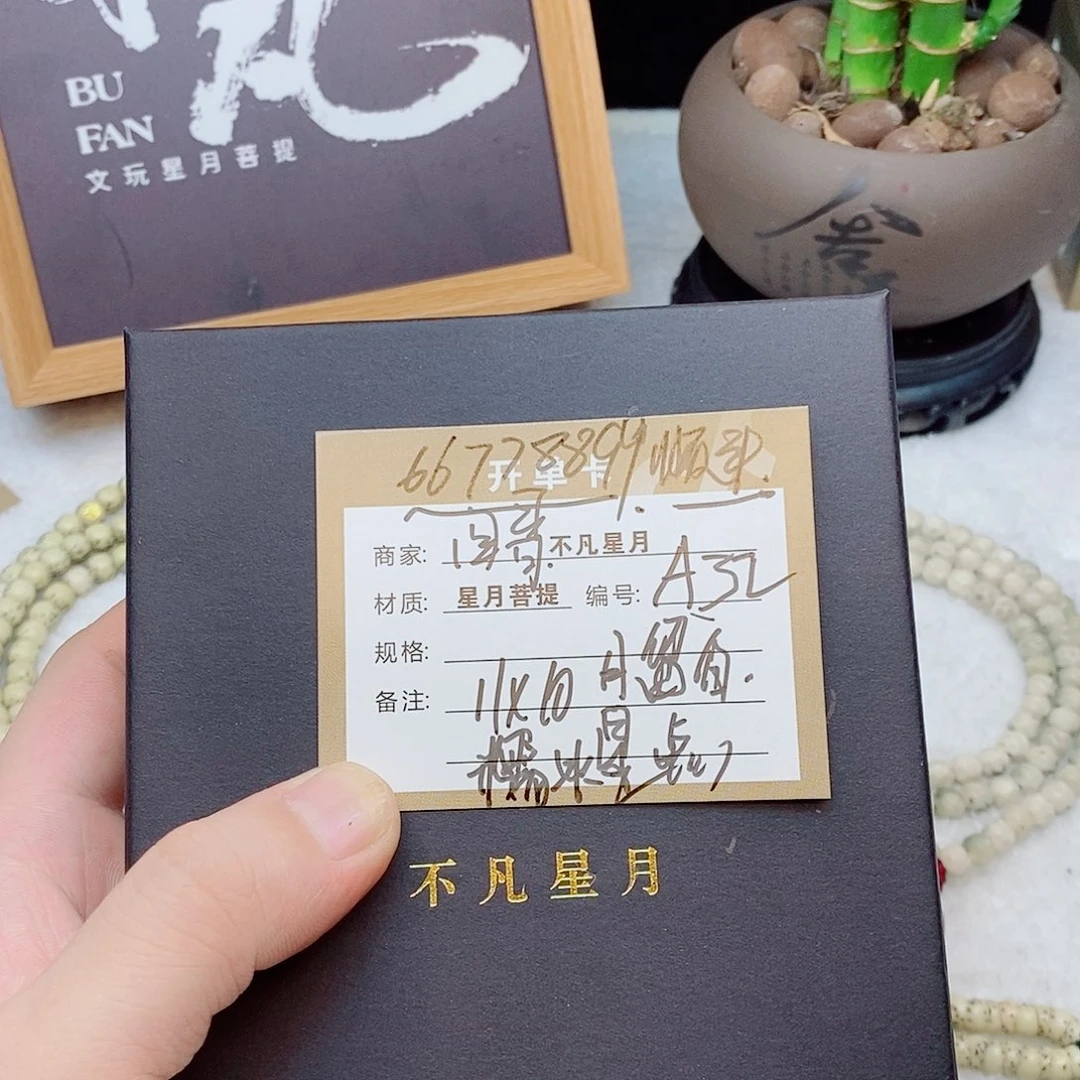 BU
FAN
文玩星月菩提
66778899 顺永
开单卡
商家: 不凡星月
材质: 星月菩提 编号: A32
规格:
备注: 11X10 月留白.
糯冰星点
不凡星月